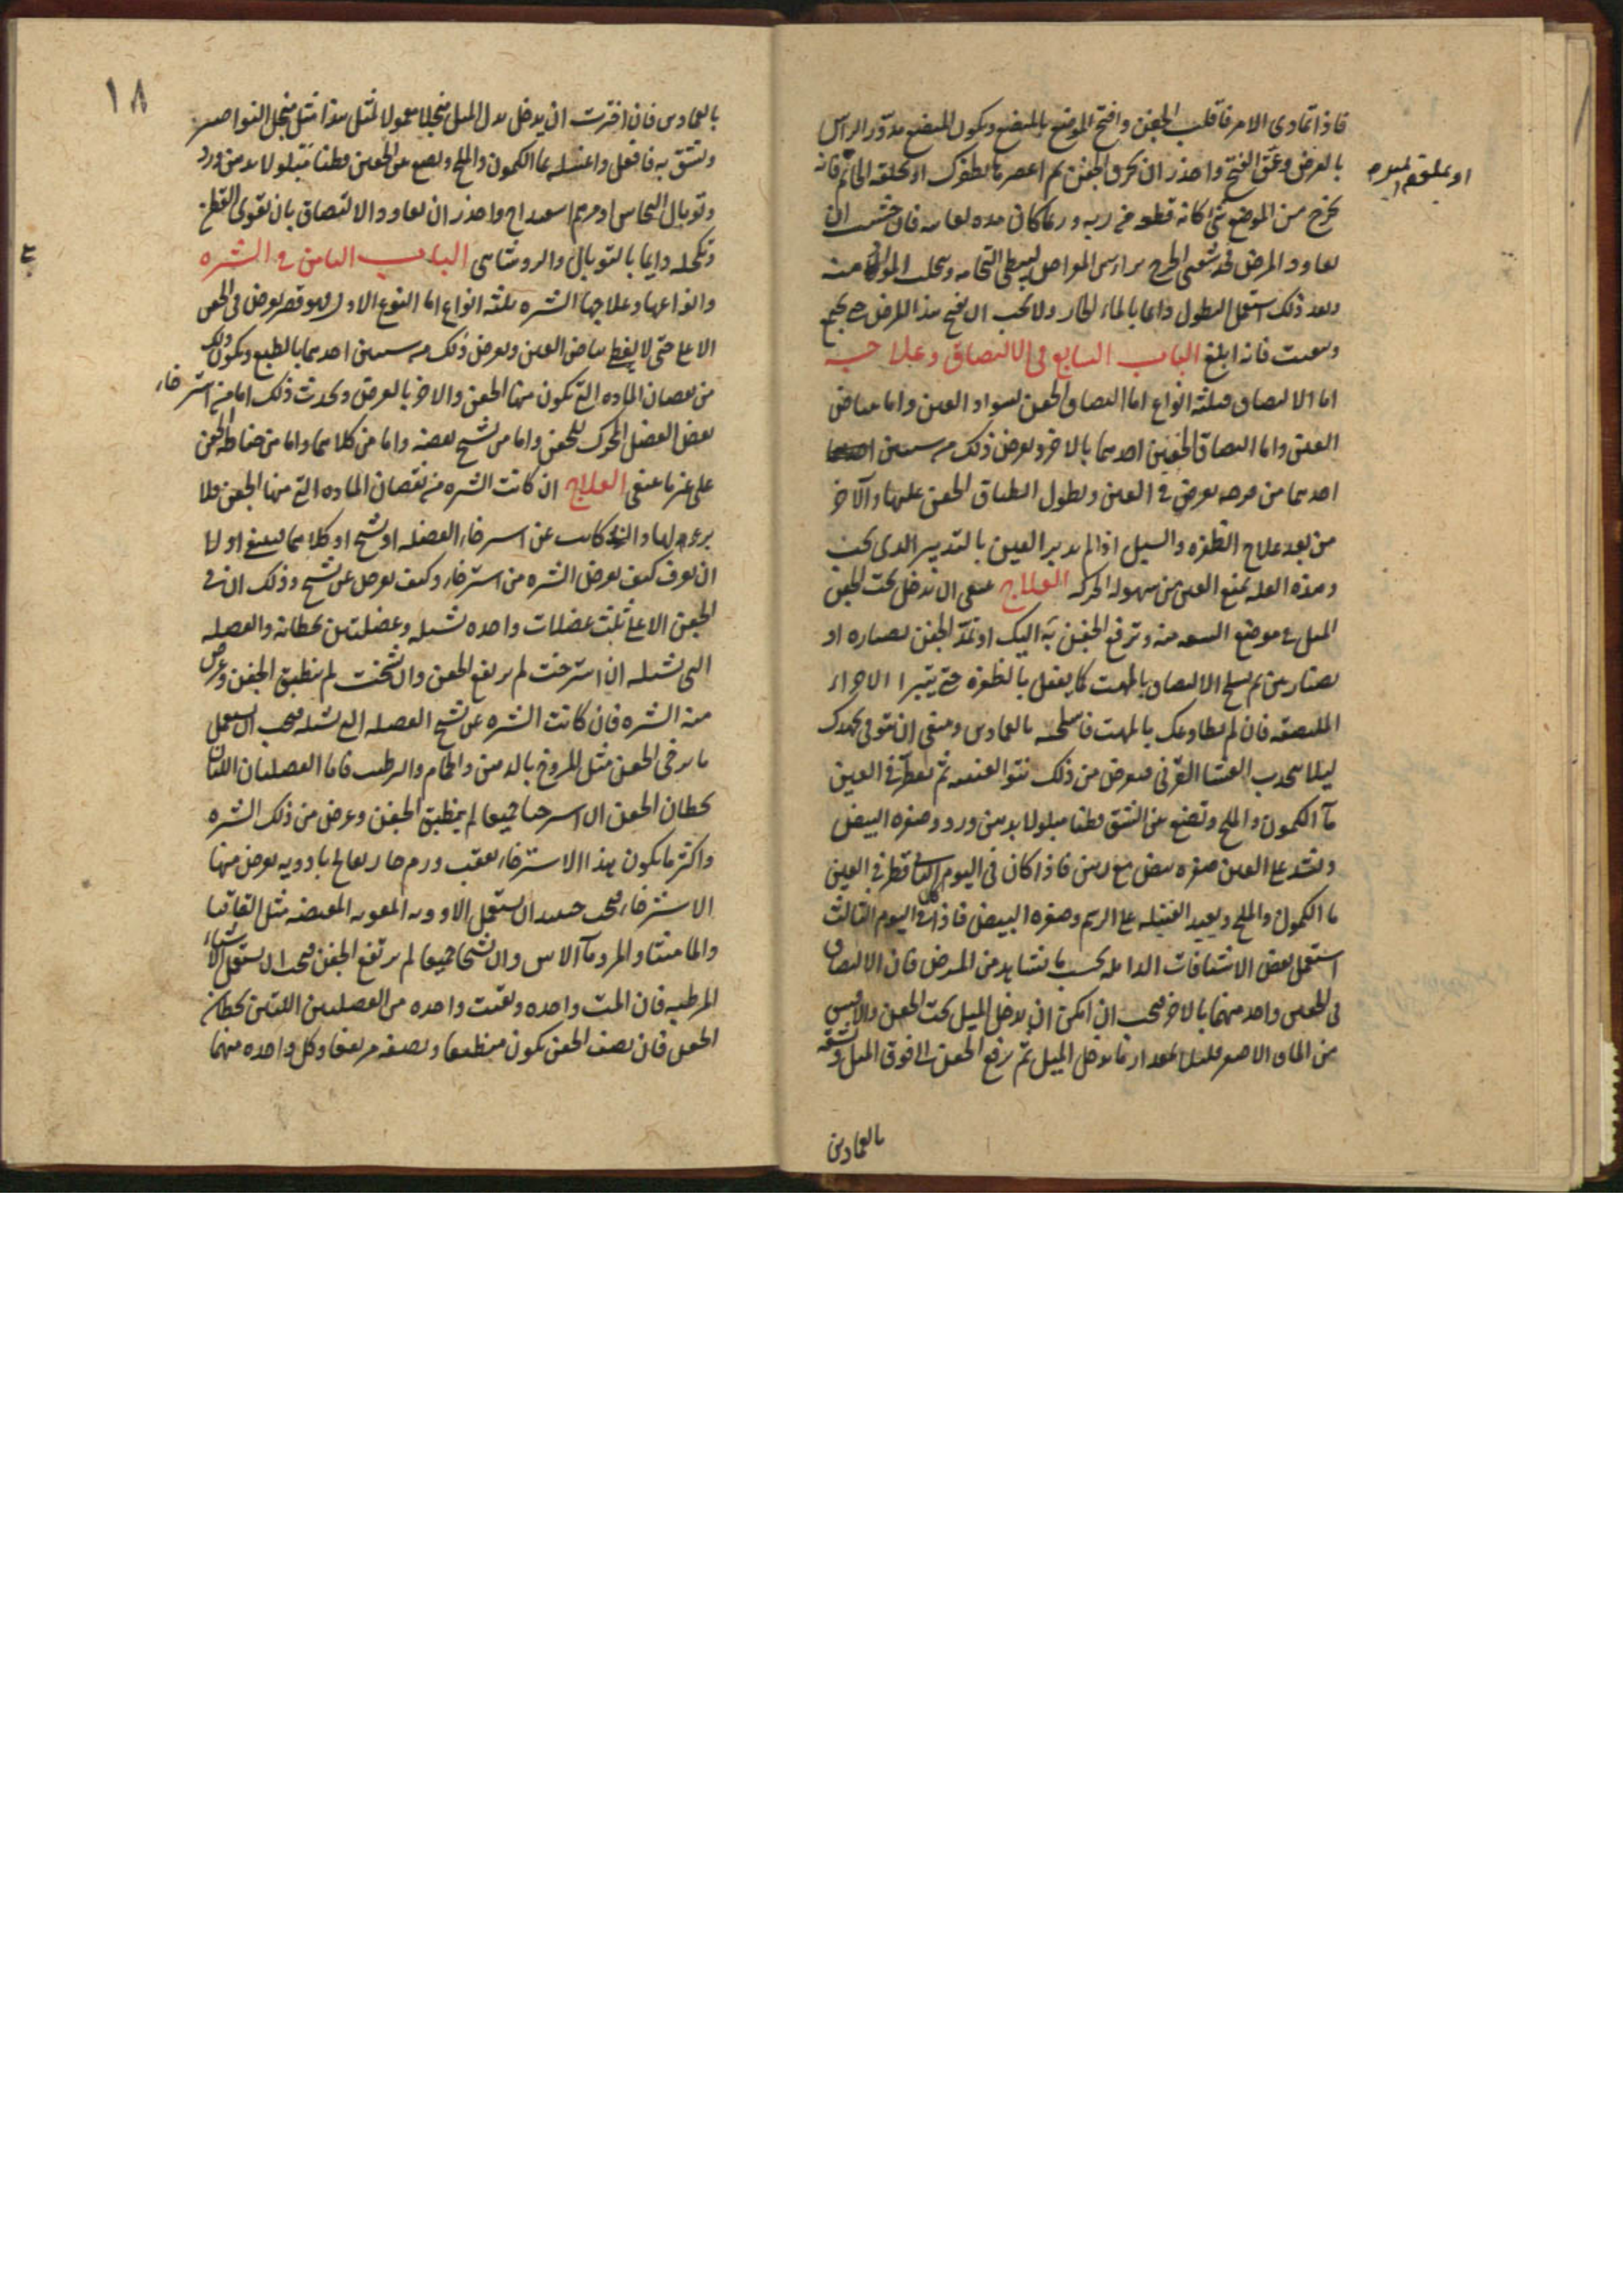 فاذا تمادى الامر فاقلب الجفن وافتح الموضع بالمبضع ويكون المبضع مدور الراس
بالعرض وعمق الفتح واحذر ان تخرق الجفن ثم اعصر بظفرك او بحلقة الخاتم فانه
او بملقط
يخرج من الموضع شئ كانه قطعه وربما كان مده فان خشيت ان
يعاود المرض فخذ شعبتي الجرح براس المقراض ليبطئ التحامه
وبعد ذلك استعمل النطول دايما بالماء الحار ولا يجب ان تفتح هذا المرض حتى يجمع
فانه ابلغ الباب السابع في الالتصاق وعلاجه
اما الالتصاق فثلثه انواع اما التصاق الجفن بسواد العين واما ببياض
العين واما التصاق الجفنين احدهما بالاخر ويعرض ذلك من سببين
احدهما من قرحه تعرض في العين ويطول انطباق الجفن عليها والآخر
من بعد علاج الظفره والسبل اذا لم يدبر العين بالتدبير الذى يجب
وهذه العله تمنع العين من سهوله الحركه العلاج ينبغي ان تدخل تحت الجفن
الميل في موضع السعه منه وترفع الجفن به اليك او تمد الجفن بصناره او
بصنارتين ثم تسلخ الالتصاق بالمهت كما يفعل بالظفره حتى يتبرا الاجزاء
الملتصقه فان لم يطاوعك بالمهت فاسلخه بالقمادين وينبغي ان تتوقى بجهدك
ليلا ينخدب الغشا القرنى فيعرض من ذلك نتو العنبيه ثم تقطر في العين
مآ الكمون والملح وتضع بين الشق قطنا مبلولا بدهن ورد وصفره البيض
وتشد على العين صفره بيض مع دهن فاذا كان في اليوم الثاني قطر في العين
ما الكمون والملح ويعيد الفتيله على الرسم وصفره البيض فاذا كان في اليوم الثالث
استعمل بعض الاشيافات الدامله بحسب ما تشاهد من المرض فان الالتصاق
في الجفنين واحد منهما بالاخر فيجب ان امكن ان يدخل الميل تحت الجفن والا
من الماق الاصغر قليل بمقدار ما يدخل الميل ثم ترفع الجفن الى فوق بالميل وتشقه
بالقمادين
١٨
بالقمادين فان اخترت ان يدخل بدل الميل منجلا معمولا لمثل هذا مثل منجل النواصير
وتشق به فافعل واغسله بما الكمون والملح وتضع بين الجفنين قطنا مبلولا بدهن ورد
وتوبال النحاس او مرهم اسفيداج واحذر ان يعاود الالتصاق بان تقوى القطن
وتكحله دايما بالتوبال والروشناى الباب الثامن في الشتره
وانواعها وعلاجها الشتره ثلثه انواع اما النوع الاول فهو قصر يعرض في الجفن
الاعلى حتى لا يغطى بياض العين ويعرض ذلك من سببين احدهما بالطبع ويكون ذلك
من نقصان الماده التى تكون منها الجفن والاخر بالعرض ويحدث ذلك اما من استرخاء
بعض العضل المحرك للجفن واما من تشنج بعضه واما من كلاهما واما من خياطه الجفن
على غير ما ينبغى العلاج ان كانت الشتره من نقصان الماده التى منها الجفن فلا
برء لها وان كانت عن استرخاء العضله او تشنج او كلاهما فينبغي اولا
ان تعرف كيف يعرض الشتره من استرخاء وكيف يعرض عن تشنج وذلك ان في
الجفن الاعلى ثلث عضلات واحده تشيله وعضلتين تحطانه والعضله
التى تشيله ان استرخت لم يرتفع الجفن وان تشنجت لم ينطبق الجفن وعرض
منه الشتره فان كانت الشتره عن تشنج العضله التى تشيله فيجب ان يستعمل
ما يرخى الجفن مثل المروخ بالدهن والحمام والترطيب فاما العضلتان اللتان
تحطان الجفن ان استرختا جميعا لم ينطبق الجفن وعرض من ذلك الشتره
واكثر ما يكون هذا الاسترخاء يعقب ورم حار يعالج بادويه يعرض منها
الاسترخاء فيجب حينئذ ان يستعمل الادويه المقويه المقبضه مثل القاقيا
والماميثا والمر ومآ الاس وان تشنجا جميعا لم يرتفع الجفن فيجب ان يستعمل الاشياء
المرطبه فان المت واحده وبقيت واحده من العضلتين اللتين تحطان
الجفن فان نصف الجفن يكون منطبقا ونصفه مرتفعا وكل واحده منهما